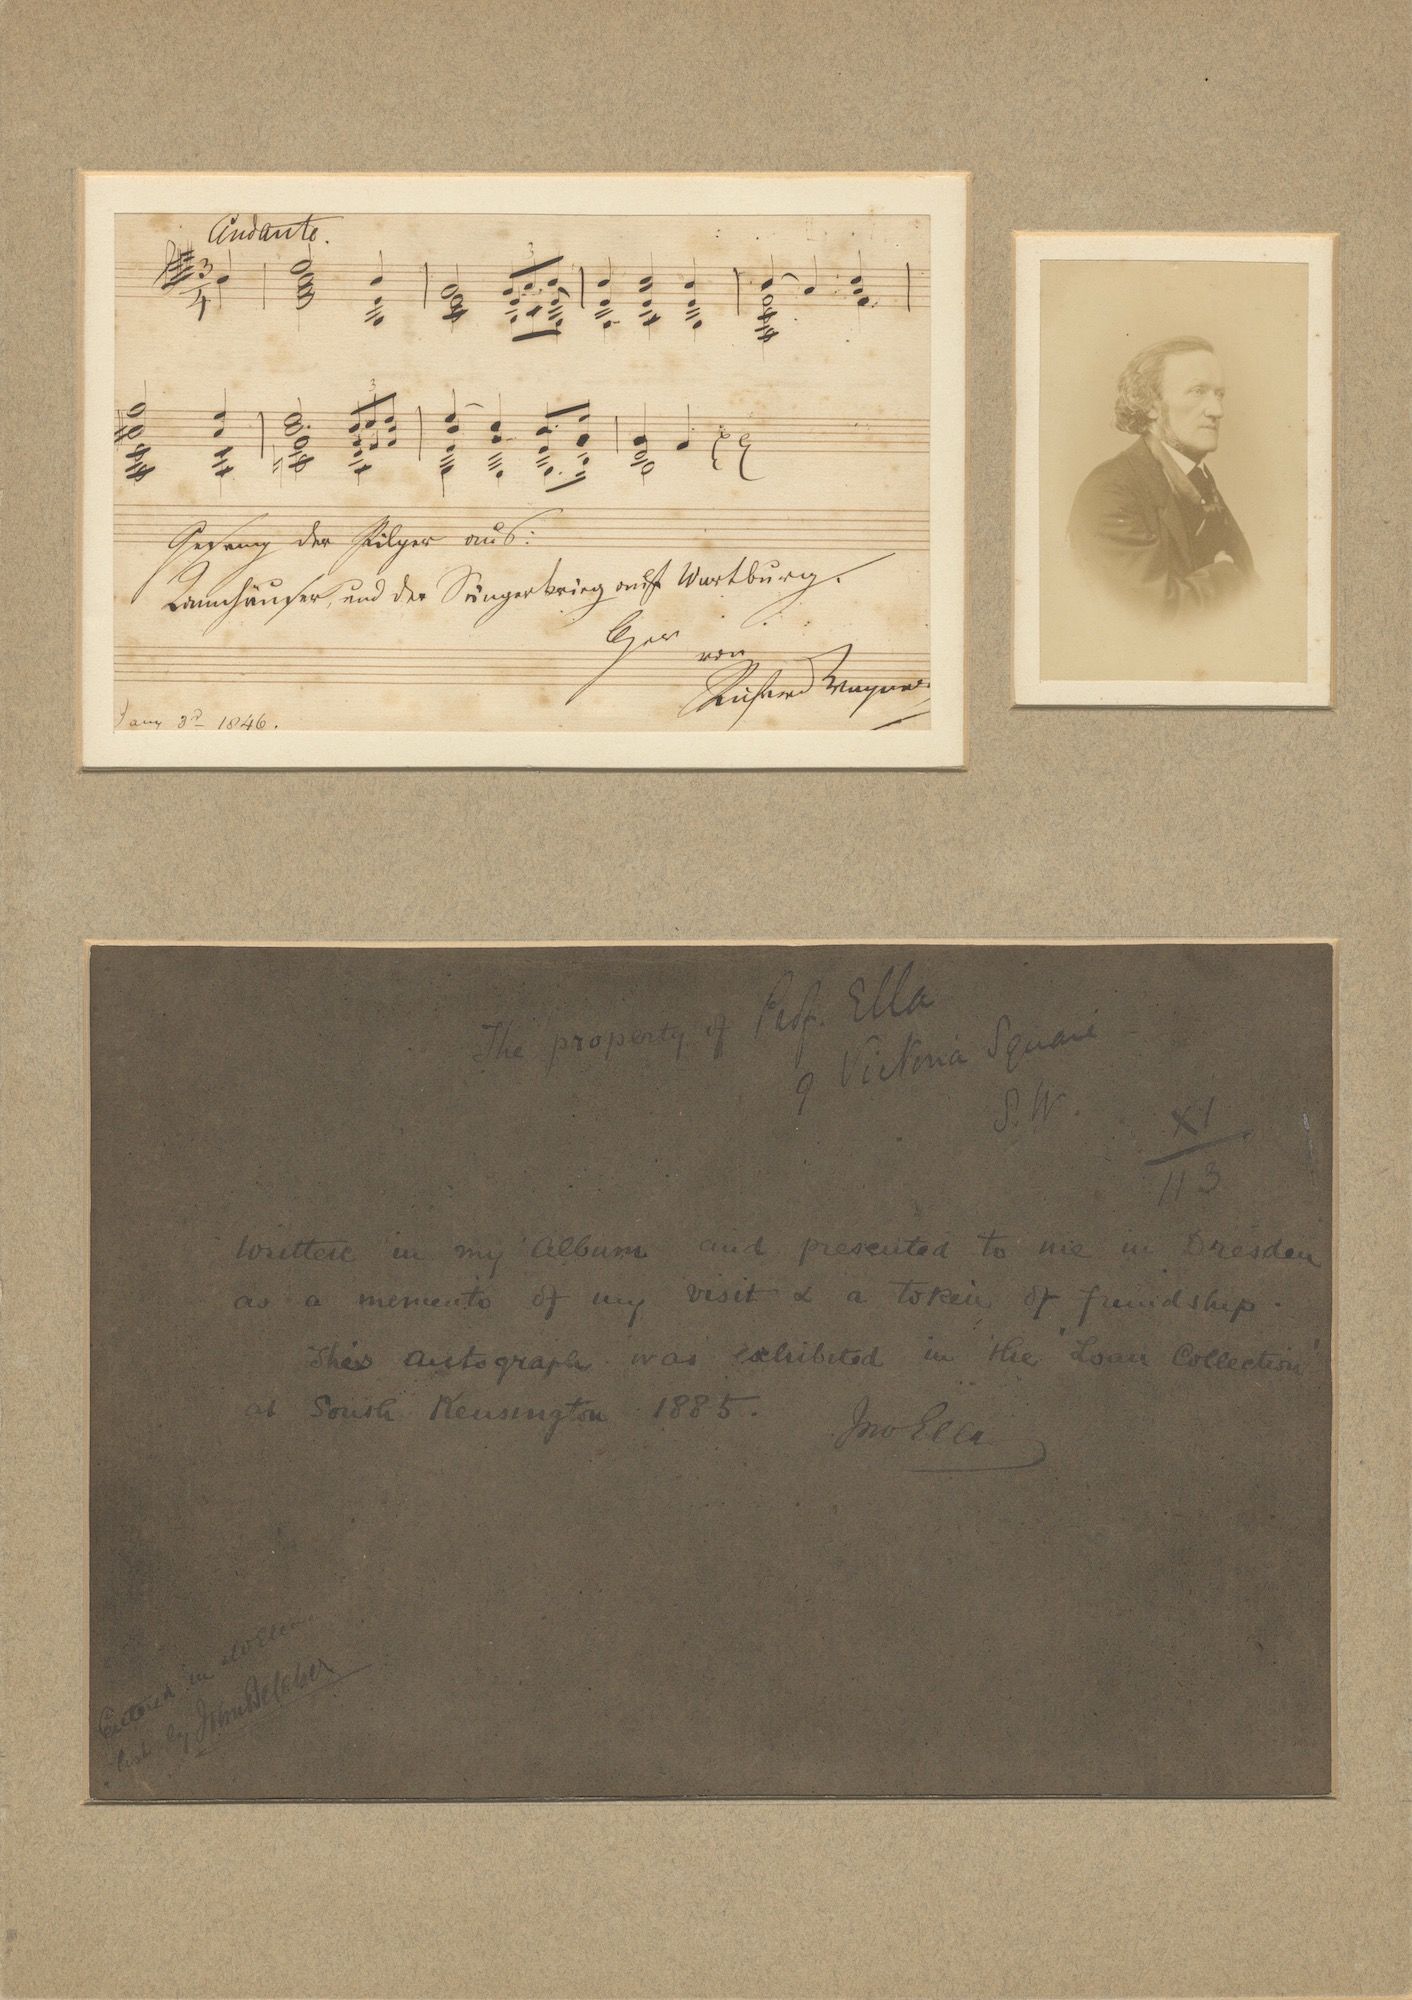 Andante.
3
4
3
3
Gesang der Pilger aus:
Tannhäuser, und der Sängerkrieg auf Wartburg.
Oper
von
Richard Wagner
Jany 3d 1846.
The property of Prof. Ella
9 Victoria Square
S.W.
XI
113
Written in my Album and presented to me in Dresden
as a memento of my visit & a token of friendship.
This autograph was exhibited in the "Loan Collection"
at South Kensington 1885.
Jno Ella
Entered in
list by John Belcher